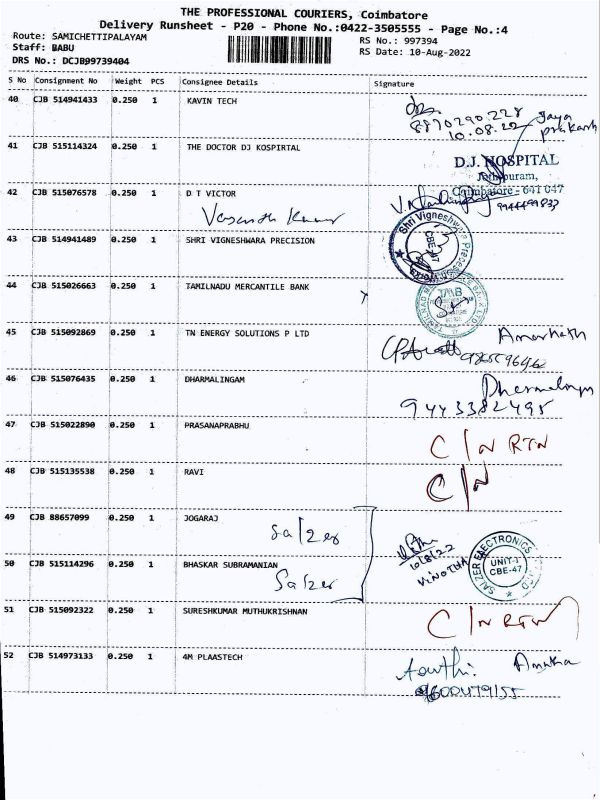 THE PROFESSIONAL COURIERS, Coimbatore
Delivery Runsheet - P20 - Phone No.:0422-3505555 - Page No.:4
Route: SAMICHETTIPALAYAM
RS No.: 997394
Staff: BABU
RS Date: 10-Aug-2022
DRS No.: DCJB99739404
S No Consignment No Weight PCS Consignee Details Signature
40 CJB 514941433 0.250 1 KAVIN TECH
8870290228 Jaya
10.08.22 prakash
41 CJB 515114324 0.250 1 THE DOCTOR DJ KOSPIRTAL
D.J. HOSPITAL
Coimbatore - 641 047
42 CJB 515076578 0.250 1 D T VICTOR
Vasanth Kumar
43 CJB 514941489 0.250 1 SHRI VIGNESHWARA PRECISION
Shri Vigneshwara
CBE-47
44 CJB 515026663 0.250 1 TAMILNADU MERCANTILE BANK
TMB
45 CJB 515092869 0.250 1 TN ENERGY SOLUTIONS P LTD
Amarnath
46 CJB 515076435 0.250 1 DHARMALINGAM
Dharmalingam
9443382495
47 CJB 515022890 0.250 1 PRASANAPRABHU
C/N RTN
48 CJB 515135538 0.250 1 RAVI
C/N
49 CJB 88657099 0.250 1 JOGARAJ
Salzer
10/8/22
VINOTHA
SALZER ELECTRONICS
UNIT-I
CBE-47
50 CJB 515114296 0.250 1 BHASKAR SUBRAMANIAN
Salzer
51 CJB 515092322 0.250 1 SURESHKUMAR MUTHUKRISHNAN
C/N RTN
52 CJB 514973133 0.250 1 4M PLAASTECH
9600479155